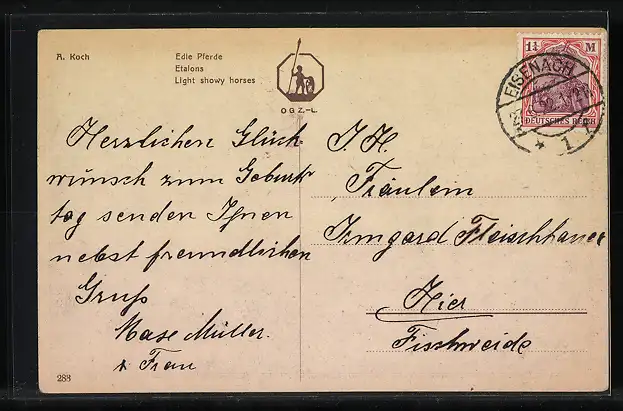 A. Koch
Edle Pferde
Etalons
Light showy horses
O.G.Z.-L.
1¼ M
DEUTSCHES REICH
EISENACH
* 1
Herzlichen Glück
wünsch zum Geburts
tag senden Ihnen
nebst freundlichen
Gruß
Müller.
Frau
283
Fräulein
Irmgard Fleischhauer
Hier
Fischweide